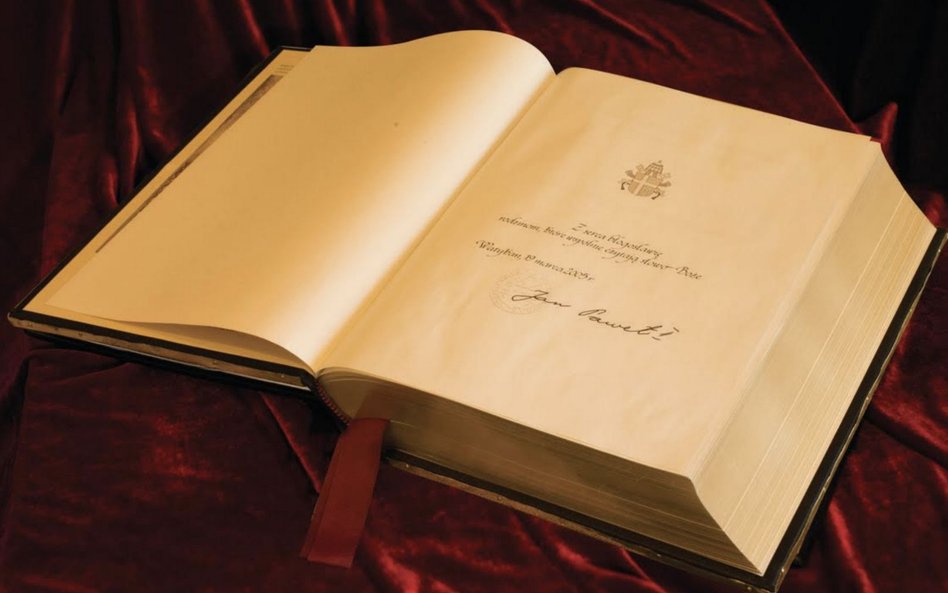 Z serca błogosławię
rodzinom, które wspólnie czytają słowo Boże
Watykan, 19 marca 2005 r.
Jan Paweł II